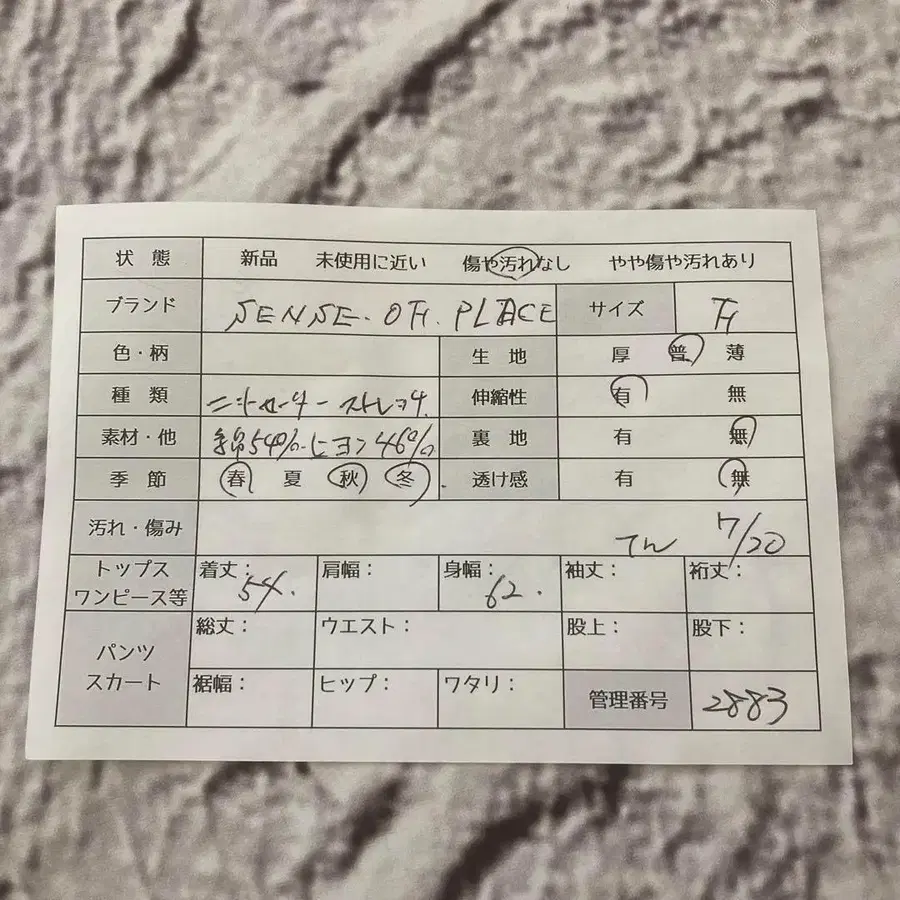 状 態 新品 未使用に近い 傷や汚れなし やや傷や汚れあり
ブランド SENSE. OF. PLACE サイズ F
色・柄 生 地 厚 普 薄
種 類 ニットセーター ストレッチ 伸縮性 有 無
素材・他 綿54%. 46% 裏 地 有 無
季 節 春 夏 秋 冬 透け感 有 無
汚れ・傷み てん 7/20
トップス ワンピース等 着丈: 54. 肩幅: 身幅: 62. 袖丈: 裄丈:
パンツ スカート 総丈: ウエスト: 股上: 股下:
裾幅: ヒップ: ワタリ: 管理番号 2883